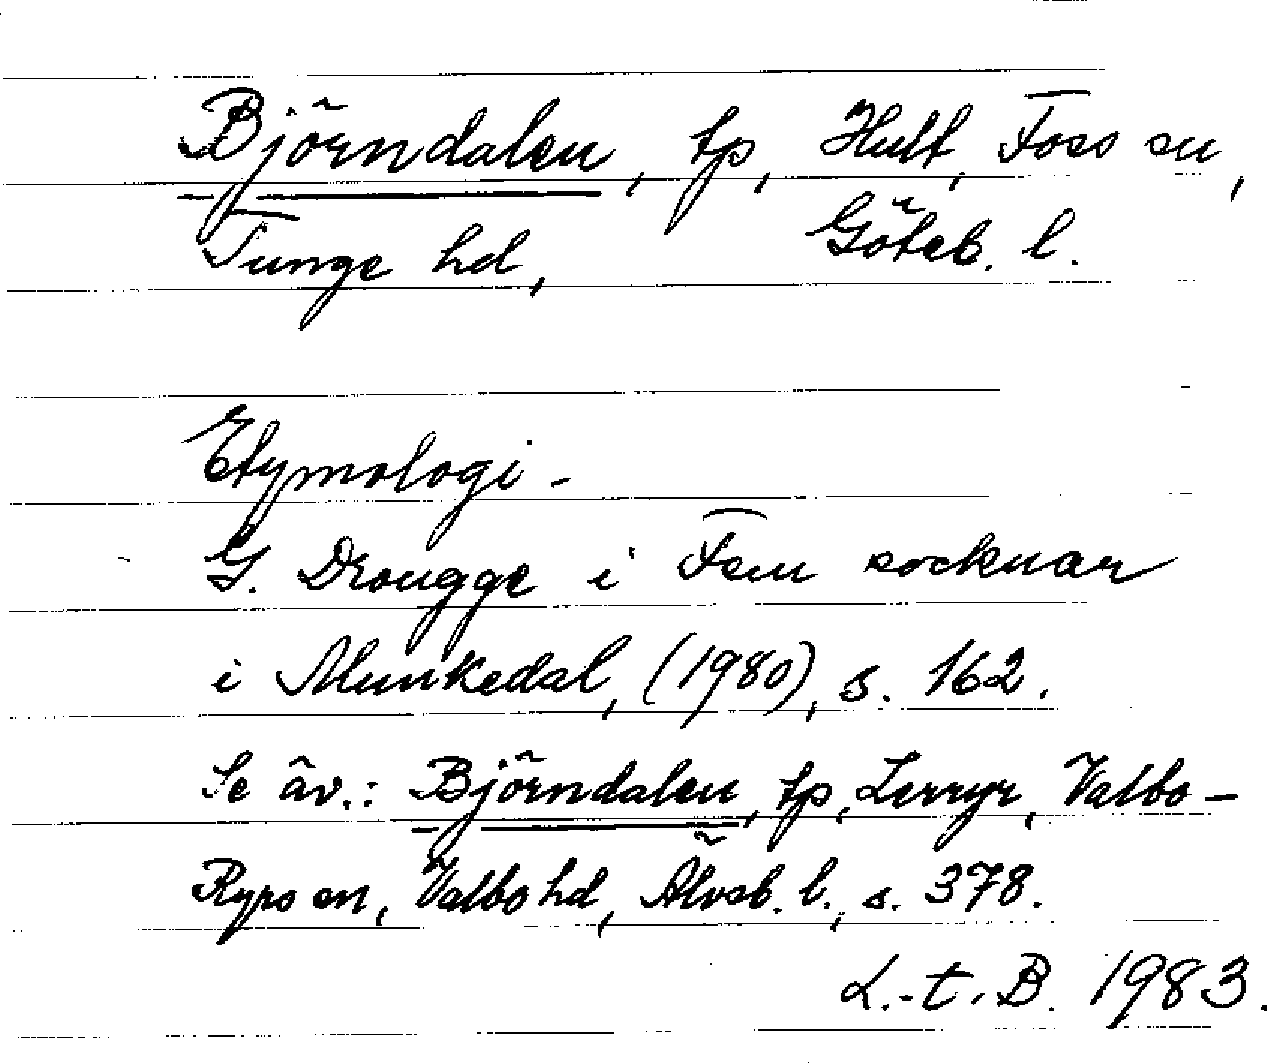 Björndalen, tp, Hult, Foss sn,
Tunge hd, Göteb. l.
Etymologi -
G. Drougge i Fem socknar
i Munkedal, (1980), s. 162.
Se äv.: Björndalen, tp, Lerryr, Valbo-
Ryrs sn, Valbo hd, Älvsb. l., s. 378.
L.-t. B. 1983.